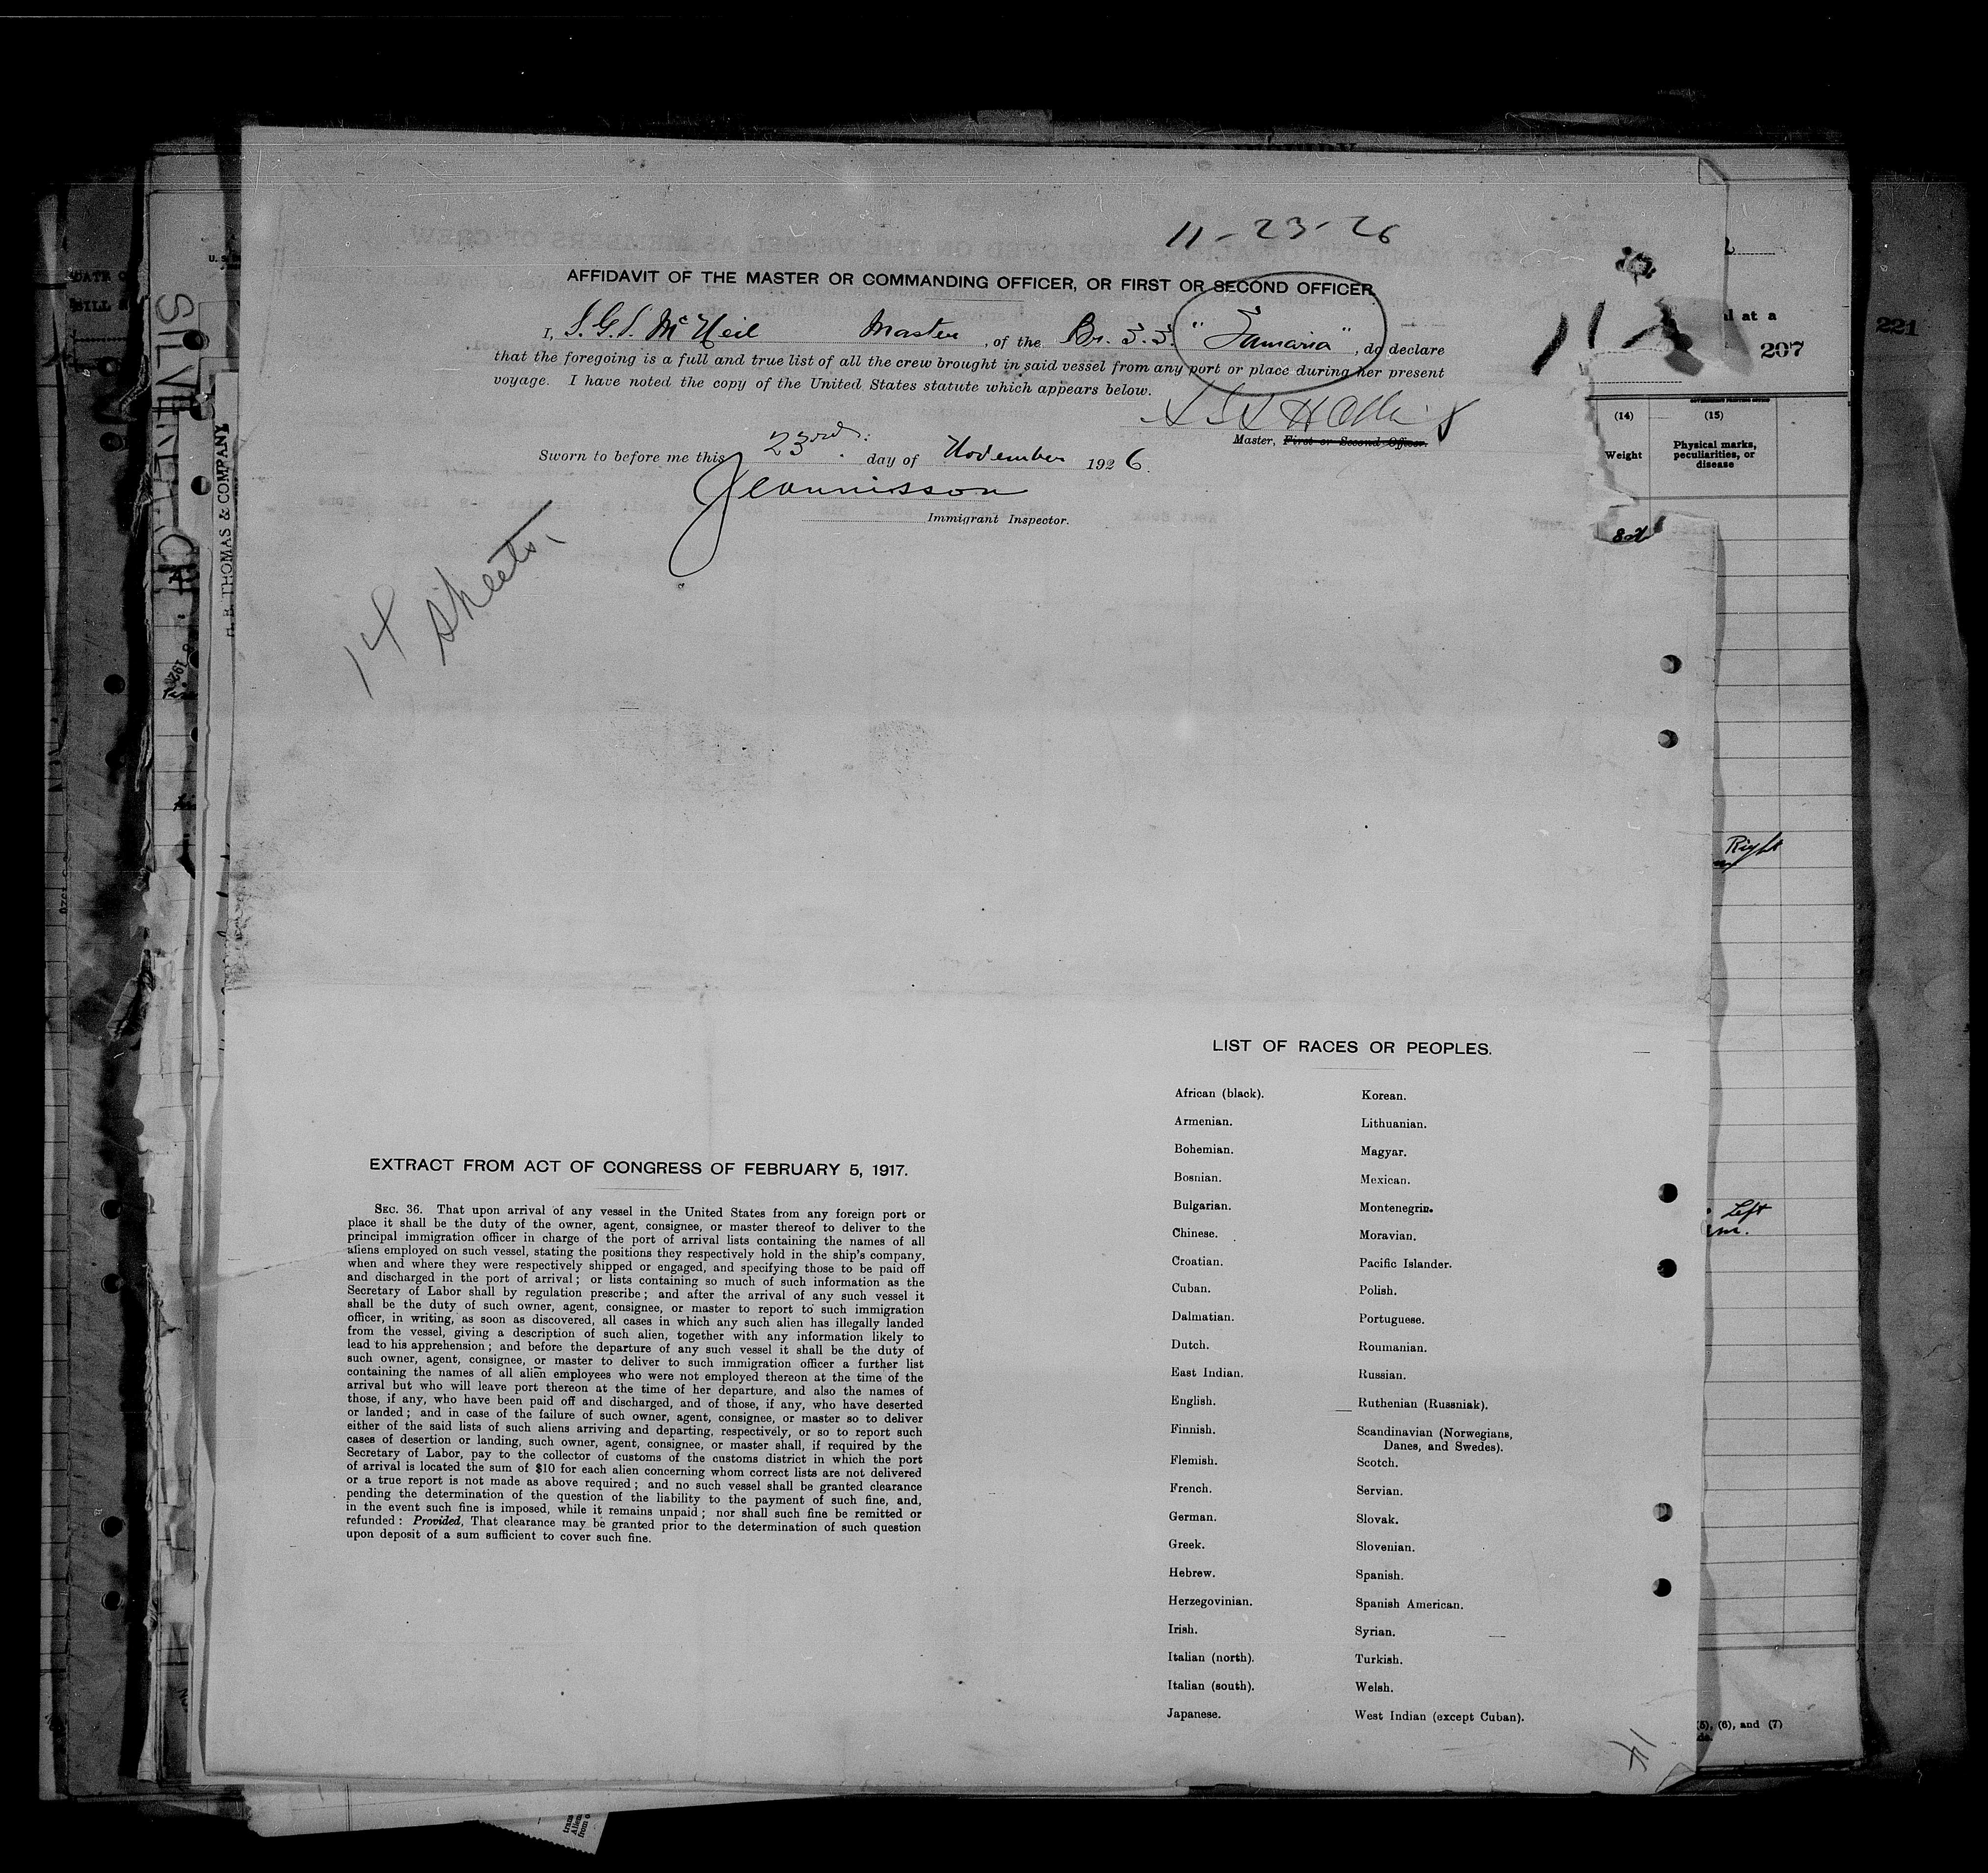 11-23-26
AFFIDAVIT OF THE MASTER OR COMMANDING OFFICER, OR FIRST OR SECOND OFFICER
I, S.G.S. McNeil Master, of the Br. S.S. "Samaria", do declare
that the foregoing is a full and true list of all the crew brought in said vessel from any port or place during her present
voyage. I have noted the copy of the United States statute which appears below.
Master, First or Second Officer.
Sworn to before me this 23rd day of November 1926.
Immigrant Inspector.
14 sheets.
EXTRACT FROM ACT OF CONGRESS OF FEBRUARY 5, 1917.
SEC. 36. That upon arrival of any vessel in the United States from any foreign port or
place it shall be the duty of the owner, agent, consignee, or master thereof to deliver to the
principal immigration officer in charge of the port of arrival lists containing the names of all
aliens employed on such vessel, stating the positions they respectively hold in the ship's company,
when and where they were respectively shipped or engaged, and specifying those to be paid off
and discharged in the port of arrival; or lists containing so much of such information as the
Secretary of Labor shall by regulation prescribe; and after the arrival of any such vessel it
shall be the duty of such owner, agent, consignee, or master to report to such immigration
officer, in writing, as soon as discovered, all cases in which any such alien has illegally landed
from the vessel, giving a description of such alien, together with any information likely to
lead to his apprehension; and before the departure of any such vessel it shall be the duty of
such owner, agent, consignee, or master to deliver to such immigration officer a further list
containing the names of all alien employees who were not employed thereon at the time of the
arrival but who will leave port thereon at the time of her departure, and also the names of
those, if any, who have been paid off and discharged, and of those, if any, who have deserted
or landed; and in case of the failure of such owner, agent, consignee, or master so to deliver
either of the said lists of such aliens arriving and departing, respectively, or so to report such
cases of desertion or landing, such owner, agent, consignee, or master shall, if required by the
Secretary of Labor, pay to the collector of customs of the customs district in which the port
of arrival is located the sum of $10 for each alien concerning whom correct lists are not delivered
or a true report is not made as above required; and no such vessel shall be granted clearance
pending the determination of the question of the liability to the payment of such fine, and,
in the event such fine is imposed, while it remains unpaid; nor shall such fine be remitted or
refunded: Provided, That clearance may be granted prior to the determination of such question
upon deposit of a sum sufficient to cover such fine.
LIST OF RACES OR PEOPLES.
African (black). Korean.
Armenian. Lithuanian.
Bohemian. Magyar.
Bosnian. Mexican.
Bulgarian. Montenegrin.
Chinese. Moravian.
Croatian. Pacific Islander.
Cuban. Polish.
Dalmatian. Portuguese.
Dutch. Roumanian.
East Indian. Russian.
English. Ruthenian (Russniak).
Finnish. Scandinavian (Norwegians,
Danes, and Swedes).
Flemish. Scotch.
French. Servian.
German. Slovak.
Greek. Slovenian.
Hebrew. Spanish.
Herzegovinian. Spanish American.
Irish. Syrian.
Italian (north). Turkish.
Italian (south). Welsh.
Japanese. West Indian (except Cuban).
14
al at a
207
221
(14) (15)
Weight
Physical marks,
peculiarities, or
disease
Right
Left
(5), (6), and (7)
H. E. THOMAS & COMPANY